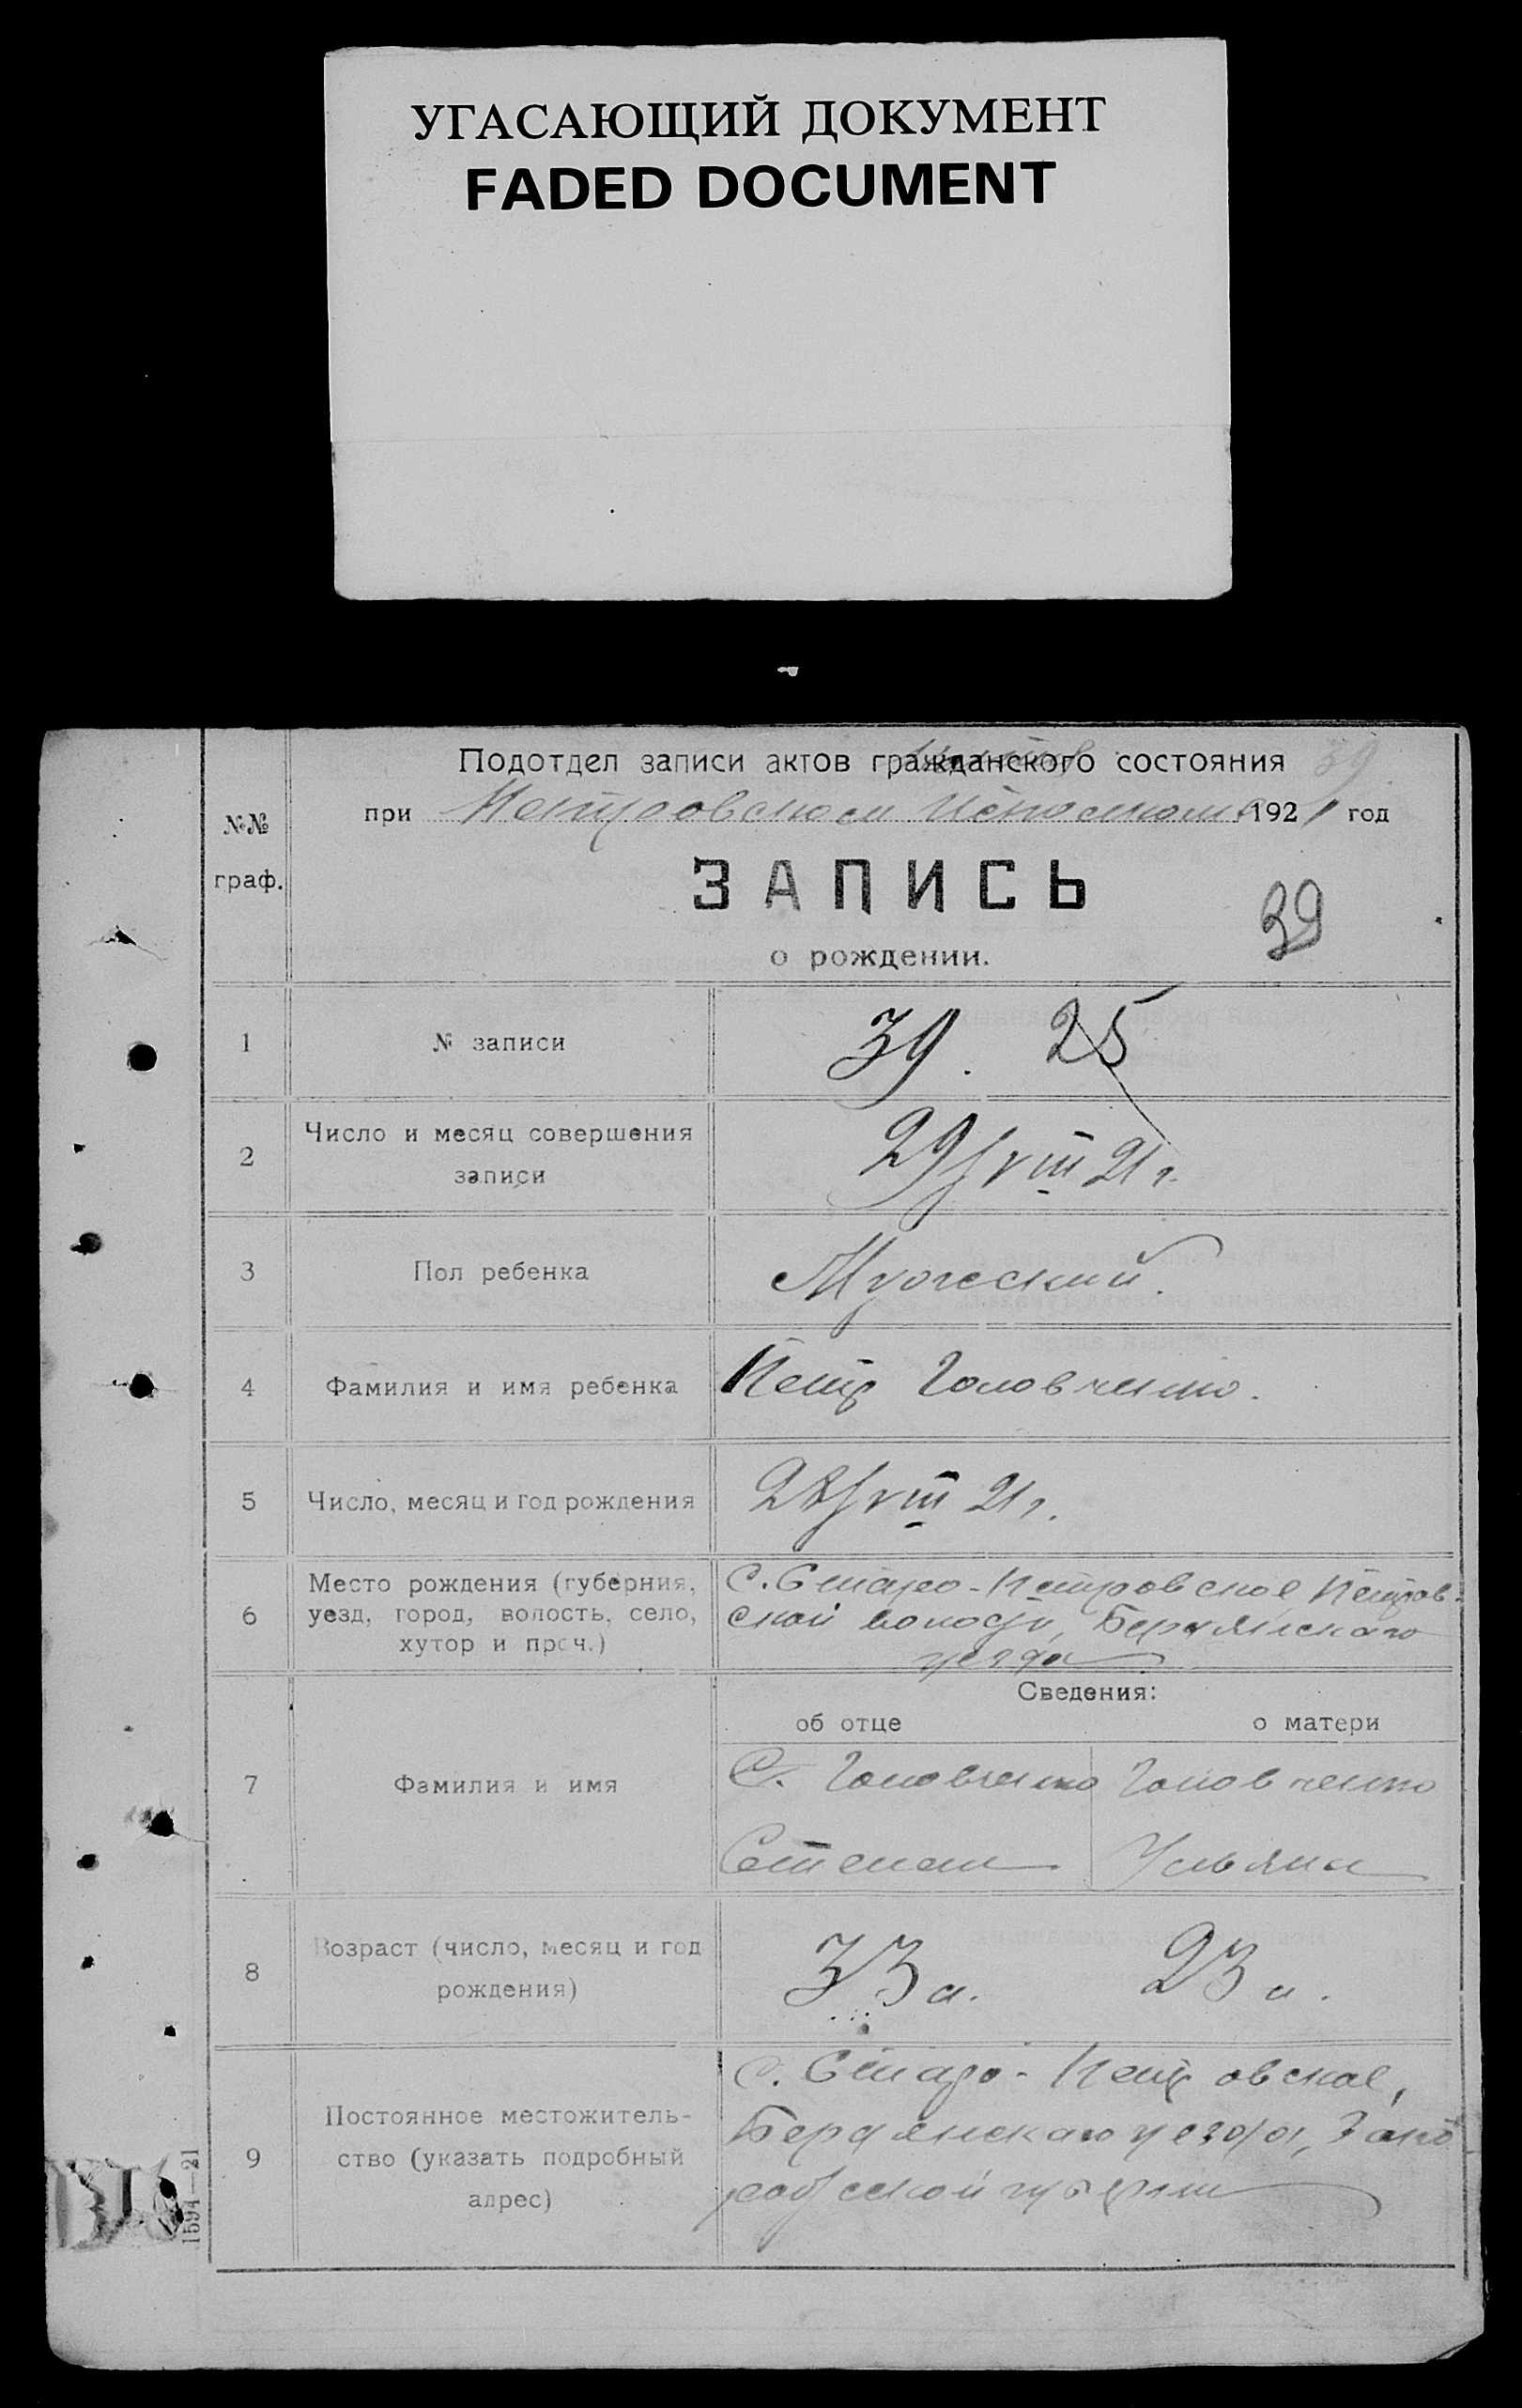 УГАСАЮЩИЙ ДОКУМЕНТ
FADED DOCUMENT
Подотдел записи актов гражданского состояния 39
при Петровском Исполкоме 1921 год
№№
граф.
ЗАПИСЬ
39
о рождении.
1 № записи 39. 25
2 Число и месяц совершения
записи
29/VIII 21 г.
3 Пол ребенка Мужеский.
4 Фамилия и имя ребенка Петр Головченко.
5 Число, месяц и год рождения 28/VIII 21 г.
6 Место рождения (губерния,
уезд, город, волость, село,
хутор и проч.)
С. Старо-Петровское Петров-
ской волости, Бердянскаго
уезда
Сведения:
об отце о матери
7 Фамилия и имя
С. Головченко Головченко
Степан Ульяна
8 Возраст (число, месяц и год
рождения)
33 л. 23 л.
9 Постоянное местожитель-
ство (указать подробный
адрес)
с. Старо-Петровское,
Бердянскаго уезда, Запо
рожской губернии
1594—21